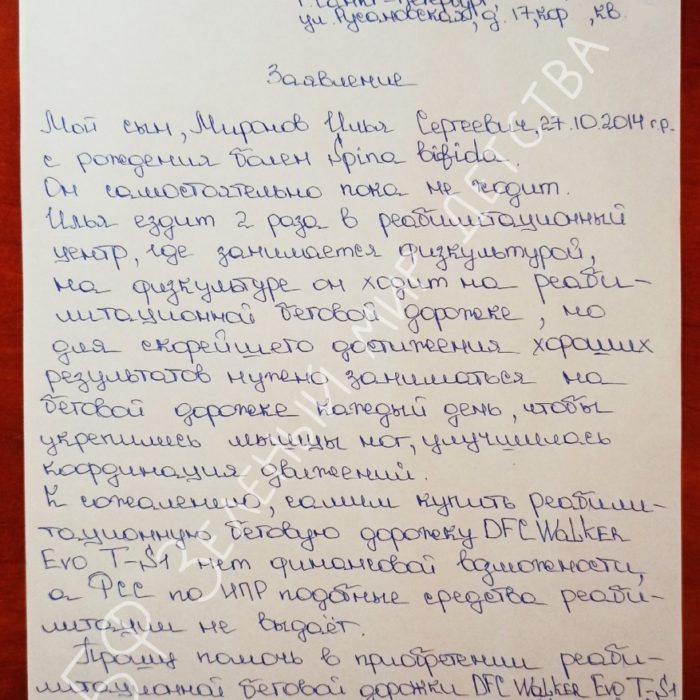 г. Санкт-Петербург
ул. Русановская, д. 17, кор , кв.
Заявление
Мой сын, Миронов Илья Сергеевич, 27.10.2014 г.р.
с рождения болен Spina bifida.
Он самостоятельно пока не ходит.
Илья ездит 2 раза в реабилитационный
центр, где занимается физкультурой,
на физкультуре он ходит на реаби-
литационной беговой дорожке, но
для скорейшего достижения хороших
результатов нужно заниматься на
беговой дорожке каждый день, чтобы
укрепились мышцы ног, улучшилась
координация движений.
К сожалению, самим купить реабили-
тационную беговую дорожку DFC Walker
Evo T-S1 нет финансовой возможности,
а ФСС по ИПР подобные средства реаби-
литации не выдаёт.
Прошу помочь в приобретении реаби-
литационной беговой дорожки DFC Walker Evo T-S1
БФ ЗЕЛЕНЫЙ МИР ДЕТСТВА